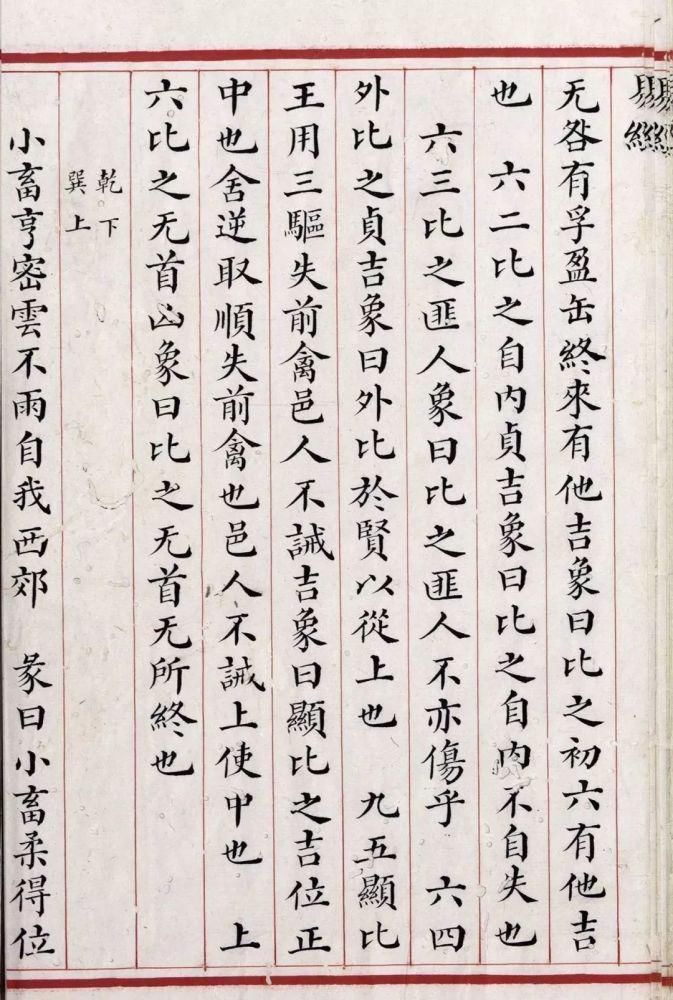 易經
无咎有孚盈缶終來有他吉象曰比之初六有他吉
也 六二比之自内貞吉象曰比之自内不自失也
六三比之匪人象曰比之匪人不亦傷乎 六四
外比之貞吉象曰外比於賢以從上也 九五顯比
王用三驅失前禽邑人不誡吉象曰顯比之吉位正
中也舍逆取順失前禽也邑人不誡上使中也 上
六比之无首凶象曰比之无首无所終也
乾下
巽上
小畜亨密雲不雨自我西郊 彖曰小畜柔得位